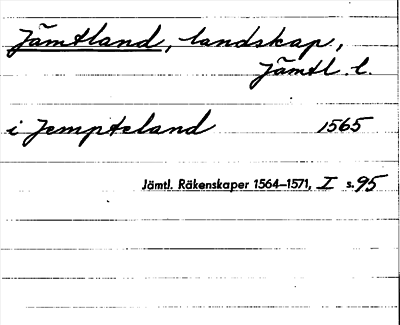 Jämtland, landskap,
Jämtl. l.
i Jempteland 1565
Jämtl. Räkenskaper 1564–1571, I s. 95